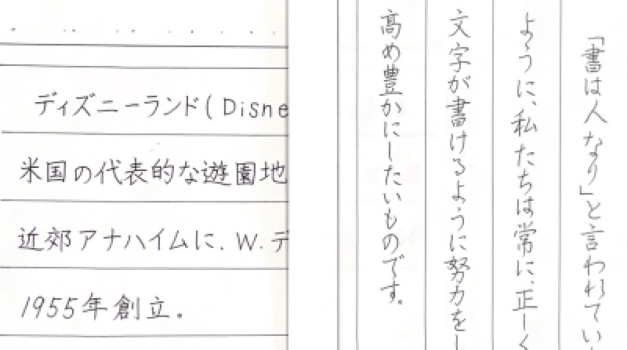 ディズニーランド(Disne
米国の代表的な遊園地
近郊アナハイムに、W.デ
1955年創立。
「書は人なり」と言われてい
ように、私たちは常に、正しく
文字が書けるように努力をし
高め豊かにしたいものです。